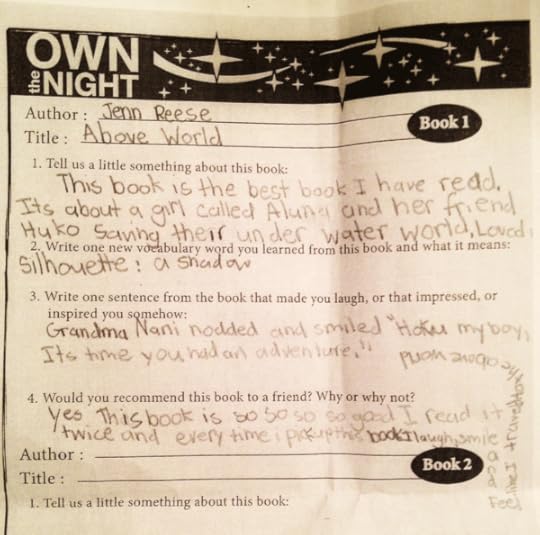 OWN
the NIGHT
Author : Jenn Reese
Book 1
Title : Above World
1. Tell us a little something about this book:
This book is the best book I have read.
Its about a girl called Aluna and her friend
Huko saving their under water world. Loved
2. Write one new vocabulary word you learned from this book and what it means:
Silhouette : a shadow
3. Write one sentence from the book that made you laugh, or that impressed, or
inspired you somehow:
Grandma Nani nodded and smiled "Hoku my boy,
Its time you had an adventure."
4. Would you recommend this book to a friend? Why or why not?
Yes This book is so so so so good I read it
twice and every time i pick up this book I laugh, smile
and feel like I traveled
the above world
Author :
Book 2
Title :
1. Tell us a little something about this book: